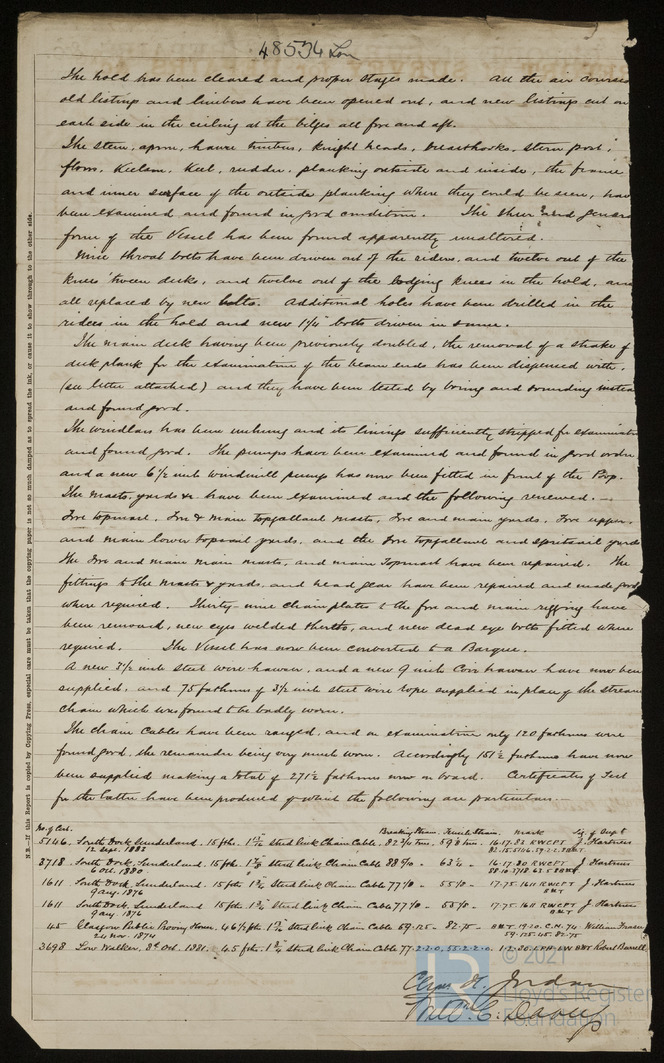 48534 Lon
The hold has been cleared and proper stages made. All the air courses
old listings and limbers have been opened out, and new listings cut on
each side in the ceiling at the bilges all fore and aft.
The stem, apron, hawse timbers, knight heads, breasthooks, stern post,
floors, keelson, keel, rudder, planking outside and inside, the frame
and inner surface of the outside planking where they could be seen, have
been examined and found in good condition. The sheer and general
form of the Vessel has been found apparently unaltered.
Nine throat bolts have been driven out of the riders, and twelve out of the
knees 'tween decks, and twelve out of the lodging knees in the hold, and
all replaced by new bolts. Additional holes have been drilled in the
riders in the hold and new 1¼ bolts driven in same.
The main deck having been previously doubled, the removal of a strake of
deck plank for the examination of the beam ends has been dispensed with.
(see letter attached) and they have been tested by boring and sounding instead
and found good.
The windlass has been unhung and its linings sufficiently stripped for examination
and found good. The pumps have been examined and found in good order
and a new 6½ inch windmill pump has now been fitted in front of the Poop.
The masts, yards &c have been examined and the following renewed.
Fore topmast, Fore & main topgallant masts, Fore and main yards, Fore upper
and main lower topsail yards, and the Fore topgallant and spritsail yards
The Fore and main masts, and main Topmast have been repaired. The
fittings to the masts & yards, and head gear have been repaired and made good
where required. Thirty-nine chain plates to the fore and main rigging have
been removed, new eyes welded thereto, and new dead eye bolts fitted where
required. The Vessel has now been converted to a Barque.
A new 3½ inch steel wire hawser, and a new 9 inch Coir hawser have now been
supplied, and 75 fathoms of 3½ inch steel wire rope supplied in place of the stream
chain which was found to be badly worn.
The chain cables have been ranged, and on examination only 120 fathoms were
found good, the remainder being very much worn. Accordingly 151½ fathoms have now
been supplied making a total of 271½ fathoms now on board. Certificates of Test
for the latter have been produced of which the following are particulars.
No. of Cert. Breaking Strain. Tensile Strain. Mark Sig. of Supt
5146. South Dock Sunderland. 15 fths. Stud link Chain Cable J. Hartness
12 Sept. 1883
3718. South Dock, Sunderland. 15 fths. Stud link Chain Cable J. Hartness
6 Oct. 1880
1611 South Dock Sunderland. 15 fths. 1¾ Stud link Chain Cable 17.75 1611 RWCPT J. Hartness
9 Aug. 1876
1611 South Dock Sunderland 15 fths 1¾ Stud link Chain Cable 17.75 1611 RWCPT J. Hartness
9 Aug. 1876
45 Glasgow Public Proving House. 46½ fths. Stud link Chain Cable 59.125 - 82.75 William Fraser
24 Nov. 1874
3698 Low Walker, 8th Oct. 1881. 45 fths. 1¾ Stud link Chain Cable 77-2-2-0, 55-2-2-0. Robert Burrell
Jordan
Davey
N.B.—If this Report is copied by Copying Press, especial care must be taken that the copying paper is not so much damped as to spread the ink, or cause it to show through to the other side.
© 2021
LR
Lloyd's Register
Foundation